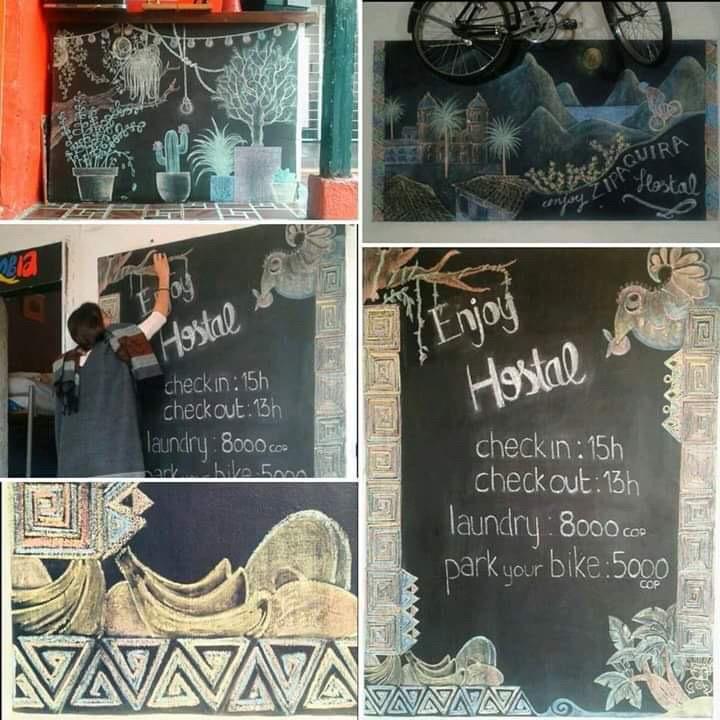 enjoy ZIPAQUIRA
Hostal
Enjoy
Hostal
check in : 15h
check out : 13h
laundry : 8000 COP
bike : 5000
Enjoy
Hostal
check in : 15h
check out : 13h
laundry : 8000 COP
park your bike : 5000
COP